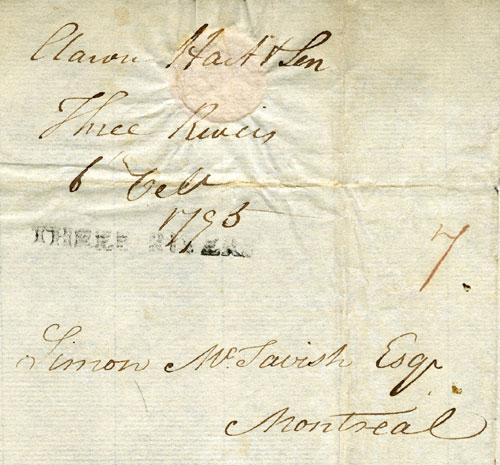 Aaron Hart & Son
Three Rivers
6 Feb
1795
THREE RIVERS
7
Simon McTavish Esqr
Montreal